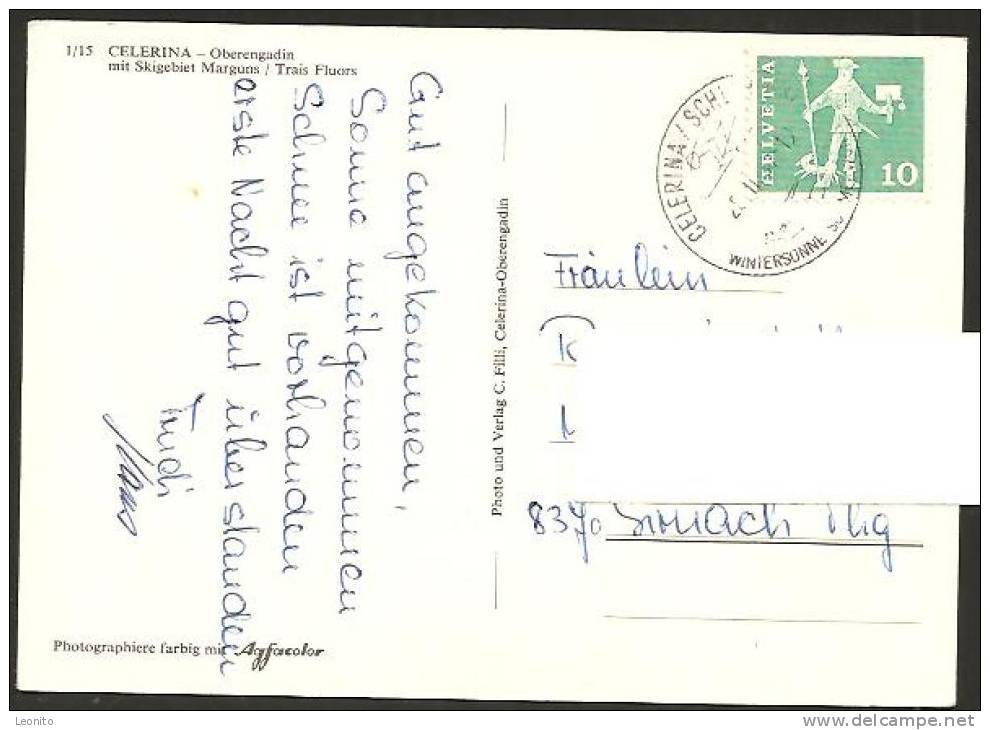 1/15 CELERINA – Oberengadin
mit Skigebiet Marguns / Trais Fluors
Gut angekommen,
Sonne mitgenommen
Schnee ist vorhanden
erste Nacht gut überstanden
Trudi
Photographiere farbig mit Agfacolor
Photo und Verlag C. Filli, Celerina-Oberengadin
HELVETIA
10
CELERINA / SCHL
WINTERSONNE
Fräulein
K
8370 Sirnach Thg
Leonito
www.delcampe.net